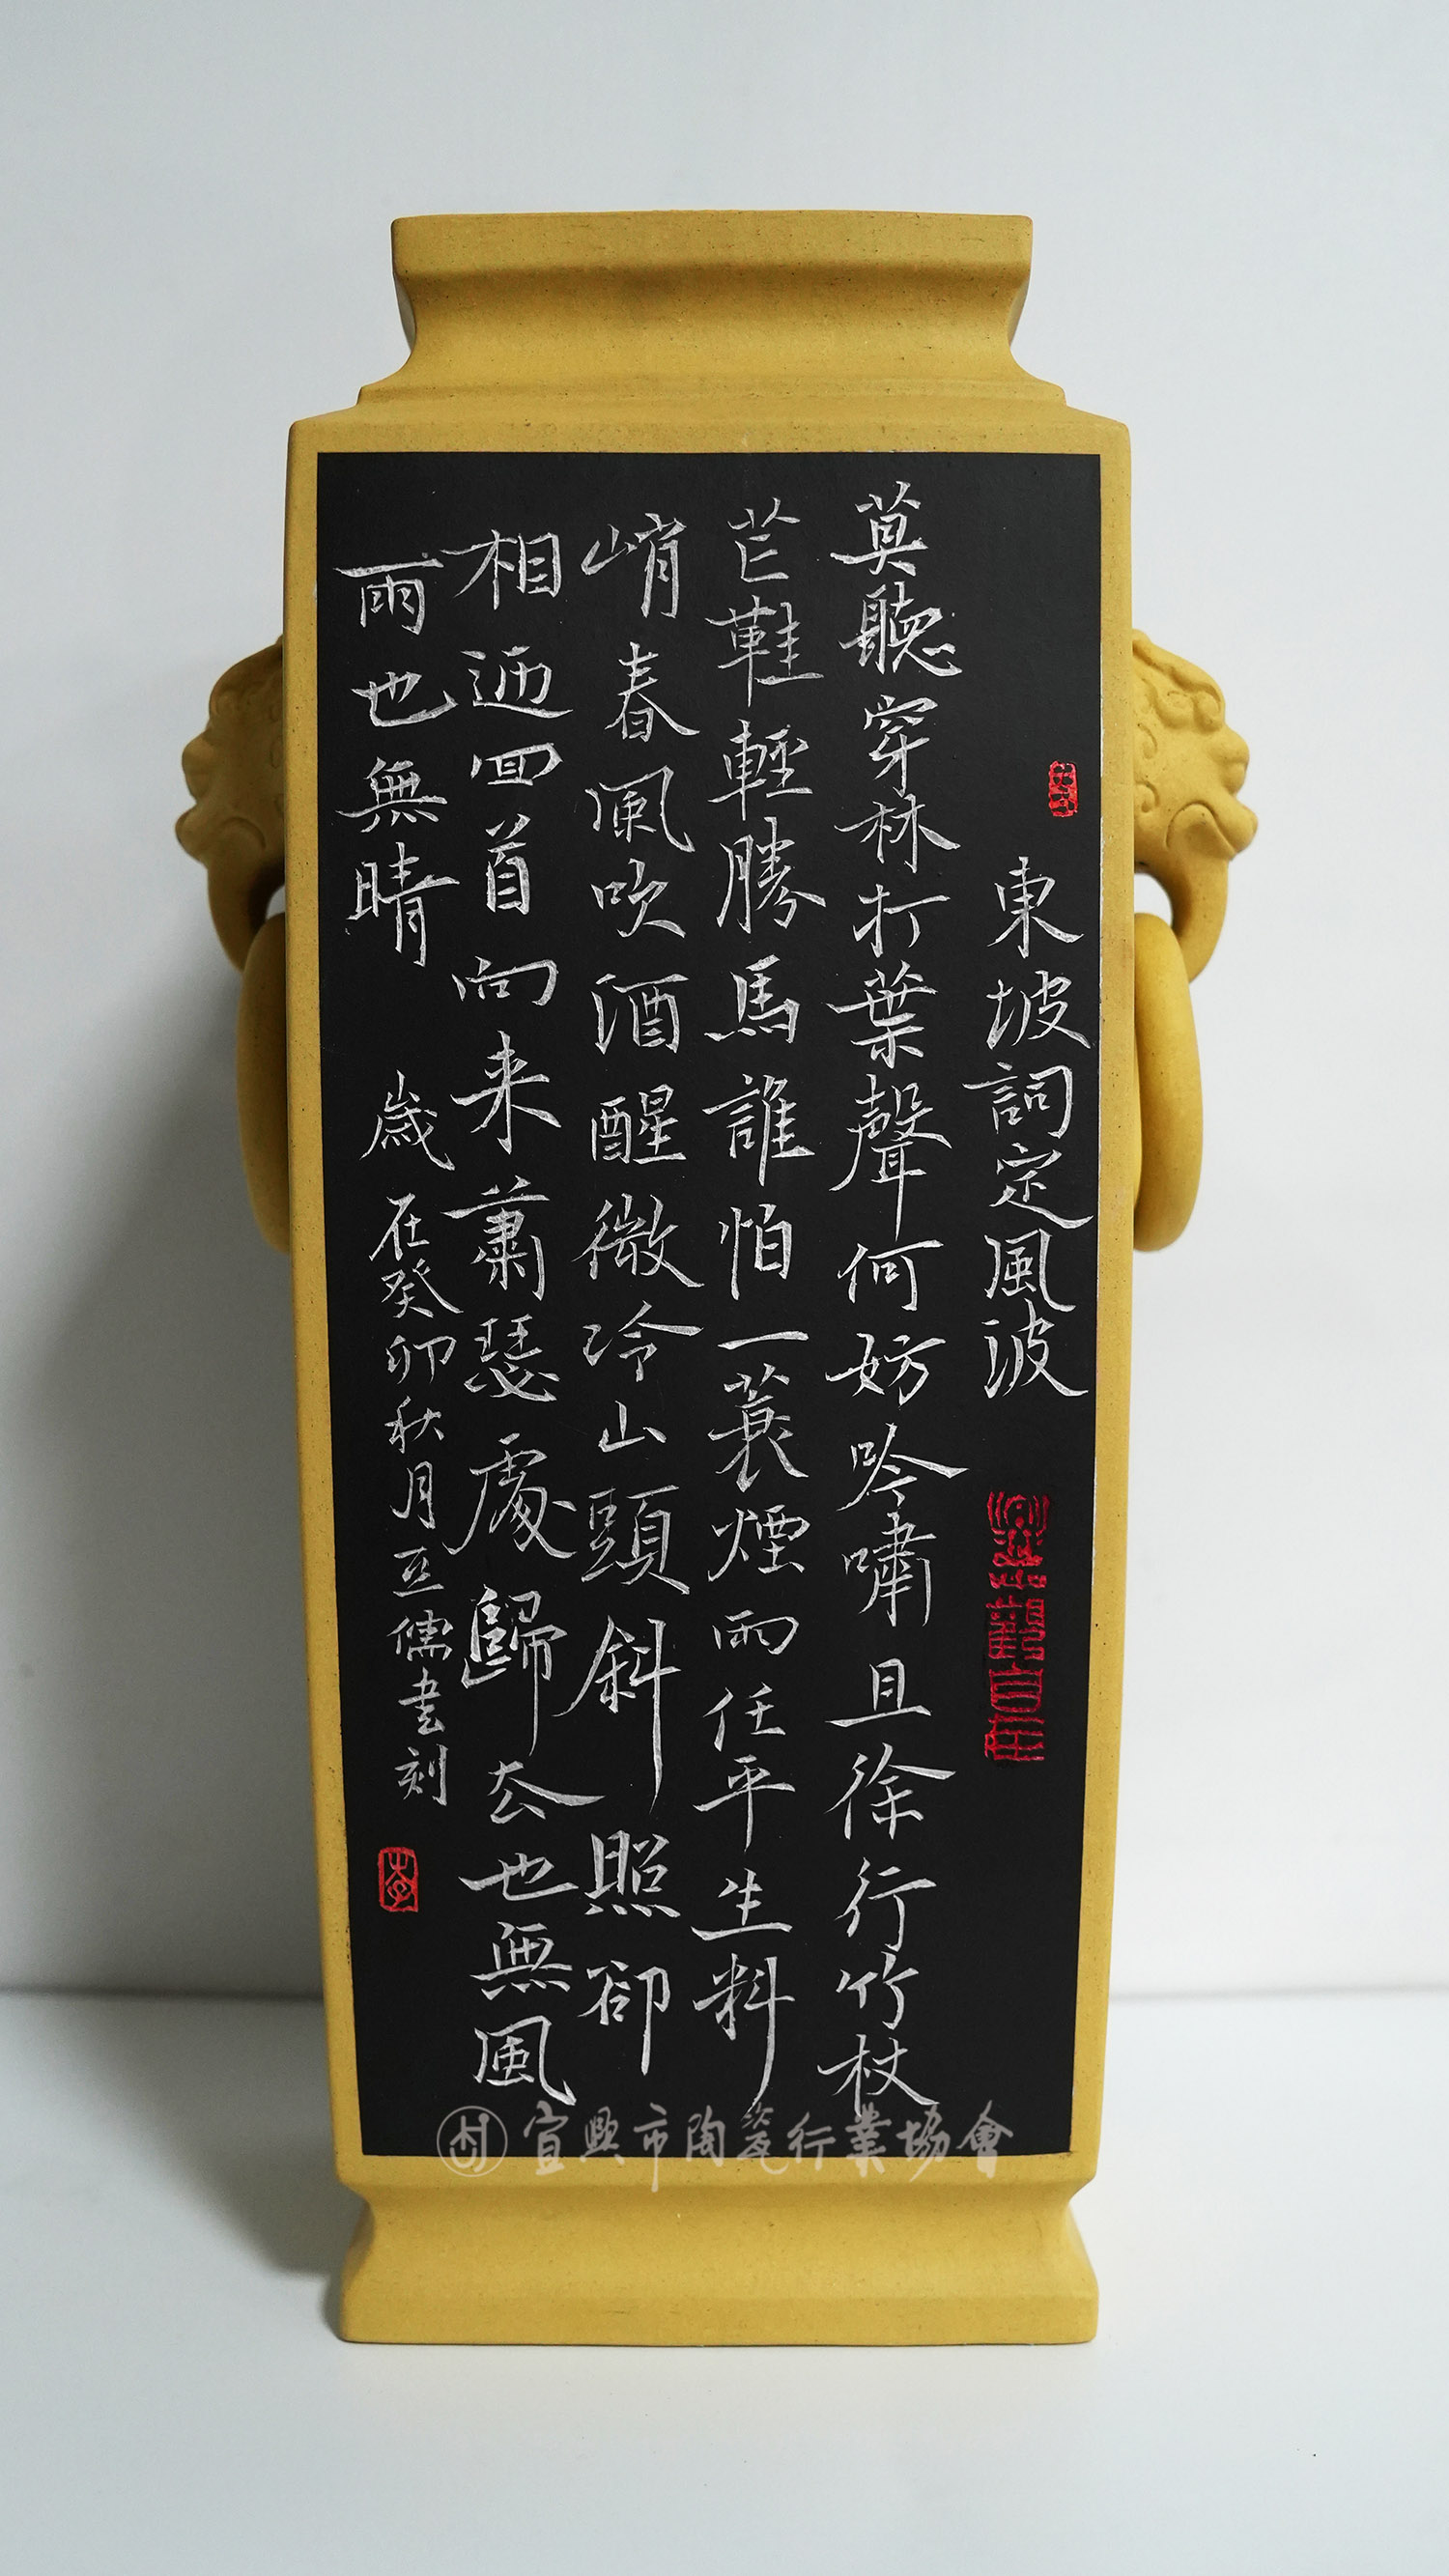 東坡詞定風波
莫聽穿林打葉聲何妨吟嘯且徐行竹杖
芒鞋輕勝馬誰怕一蓑煙雨任平生料
峭春風吹酒醒微冷山頭斜照卻
相迎回首向来蕭瑟處歸去也無風
雨也無晴 歲在癸卯秋月互儒書刻
宜興市陶瓷行業協會